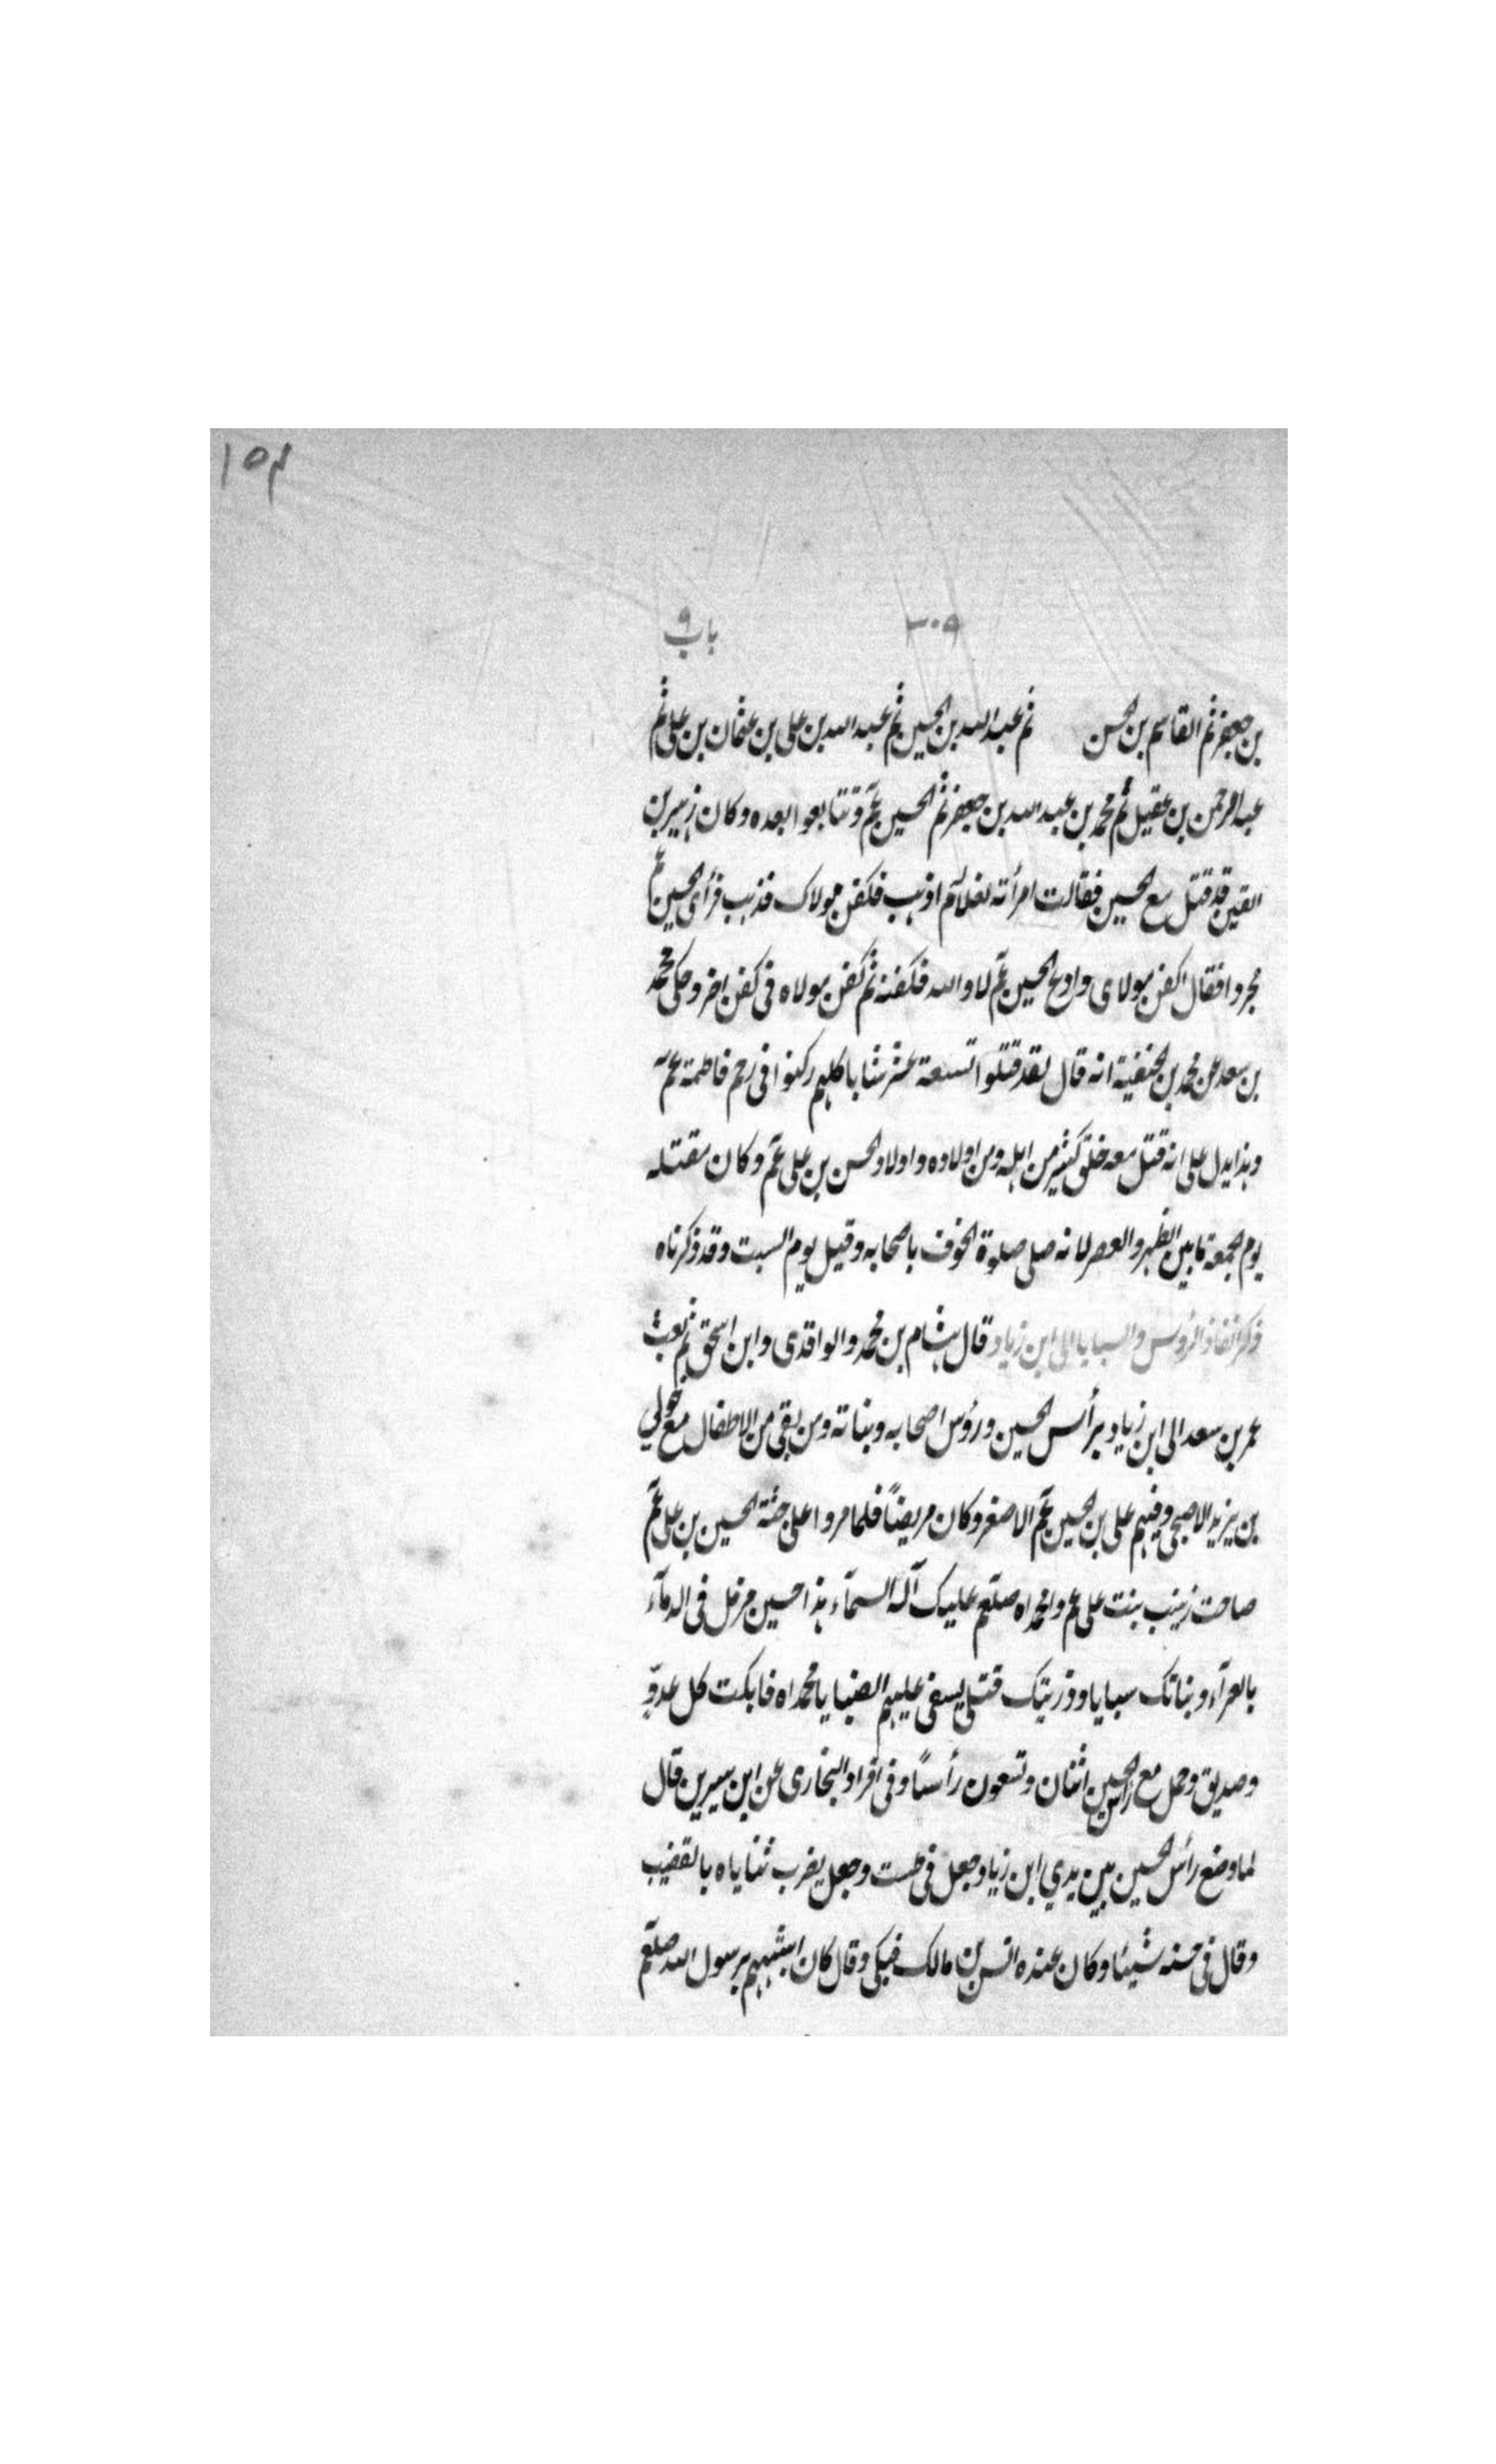 ١٥٤
٣٠٩ باب ٩
بن جعفر ثم القاسم بن الحسن ثم عبد الله بن الحسين ثم عبد الله بن علي بن عثمان بن علي ثم
عبد الرحمن بن عقيل ثم محمد بن عبد الله بن جعفر ثم الحسين عم وتتابعوا بعده وكان زهير بن
القين قد قتل مع الحسين فقالت امرأته لغلام اذهب فكفن مولاك فذهب فرأى الحسين عم
مجردا فقال اكفن مولاى وادع الحسين عم لا والله فكفنه ثم كفن مولاه فى كفن اخر وحكى محمد
بن سعد عن محمد بن الحنفية انه قال لقد قتلوا تسعة عشر شابا كلهم ركضوا فى رحم فاطمة عم
وهذا يدل على انه قتل معه خلق كثير من اهله ومن اولاده واولاد الحسن بن على عم وكان مقتله
يوم الجمعة ما بين الظهر والعصر لانه صلى صلوة الخوف باصحابه وقيل يوم السبت وقد ذكرناه
ذكر انفاذ الرؤس والسبايا الى ابن زياد قال هشام بن محمد والواقدى وابن اسحق ثم بعث
عمر بن سعد الى ابن زياد برأس الحسين ورؤس اصحابه وبناته ومن بقى من الاطفال مع خولي
بن يزيد الاصبحى وفيهم على بن الحسين عم الاصغر وكان مريضاً فلما مروا على جثة الحسين بن على عم
صاحت زينب بنت على عم وامحمداه صلعم عليك آله السمآء هذا حسين مرمل فى الدمآء
بالعرآء وبناتك سبايا وذريتك قتلى يسفى عليهم الصبا يا محمداه فابكت كل عدوٍ
وصديق وحمل مع رأس الحسين اثنان وتسعون رأساً وفى افراد البخارى عن ابن سيرين قال
لما وضع رأس الحسين بين يدي ابن زياد جعل فى طست وجعل يضرب ثناياه بالقضيب
وقال فى حسنه شيئا وكان عنده انس بن مالك فبكى وقال كان اشبههم برسول الله صلعم